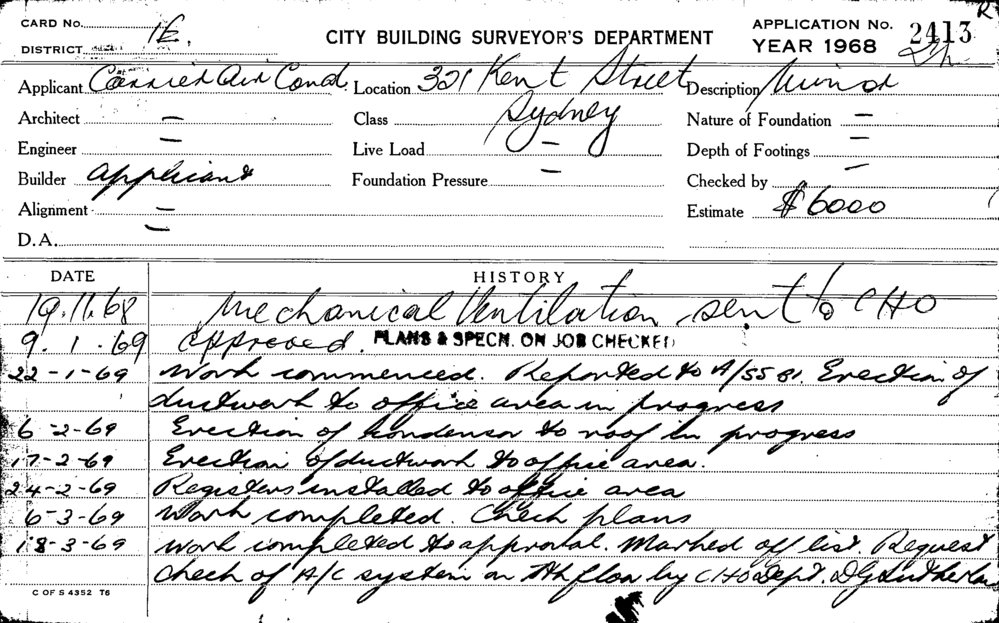 R
CARD No.
DISTRICT 1E.
CITY BUILDING SURVEYOR'S DEPARTMENT
APPLICATION No. 2413
YEAR 1968
Applicant Carrier Air Cond. Location 321 Kent Street Description Minor
Architect — Class Sydney Nature of Foundation —
Engineer — Live Load — Depth of Footings —
Builder Applicant Foundation Pressure — Checked by —
Alignment — Estimate $6000
D.A. —
DATE HISTORY
19.11.68 Mechanical Ventilation sent to CHO
9.1.69 approved. PLANS & SPECN. ON JOB CHECKED
22-1-69 Work commenced. Reported to A/SS 81. Erection of
ductwork to office area in progress
6-2-69 Erection of kondensor to roof in progress
17-2-69 Erection of ductwork to office area.
24-2-69 Registers installed to office area
6-3-69 Work completed. Check plans
18-3-69 Work completed to approval. Marked off list. Request
check of A/C system on 7th floor by CHO Dept. DG
C OF S 4352 T6